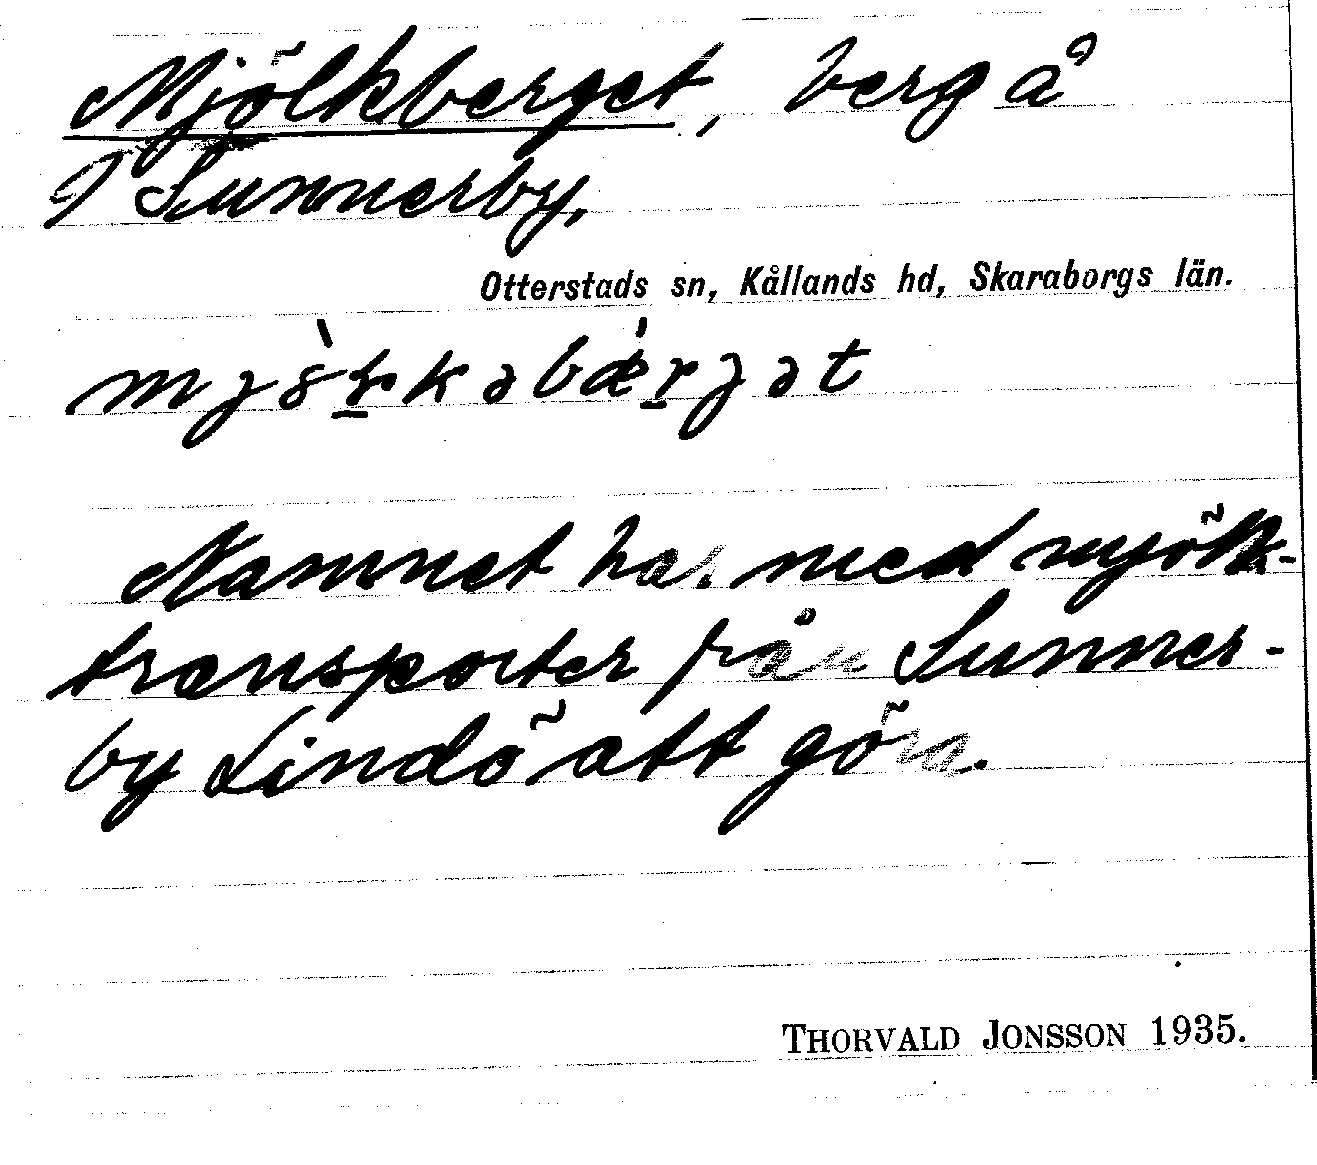 Mjölkberget, berg å
I Sunnerby.
Otterstads sn, Kållands hd, Skaraborgs län.
Namnet har med mjölk-
transporter från Sunner-
by Lindö att göra.
THORVALD JONSSON 1935.